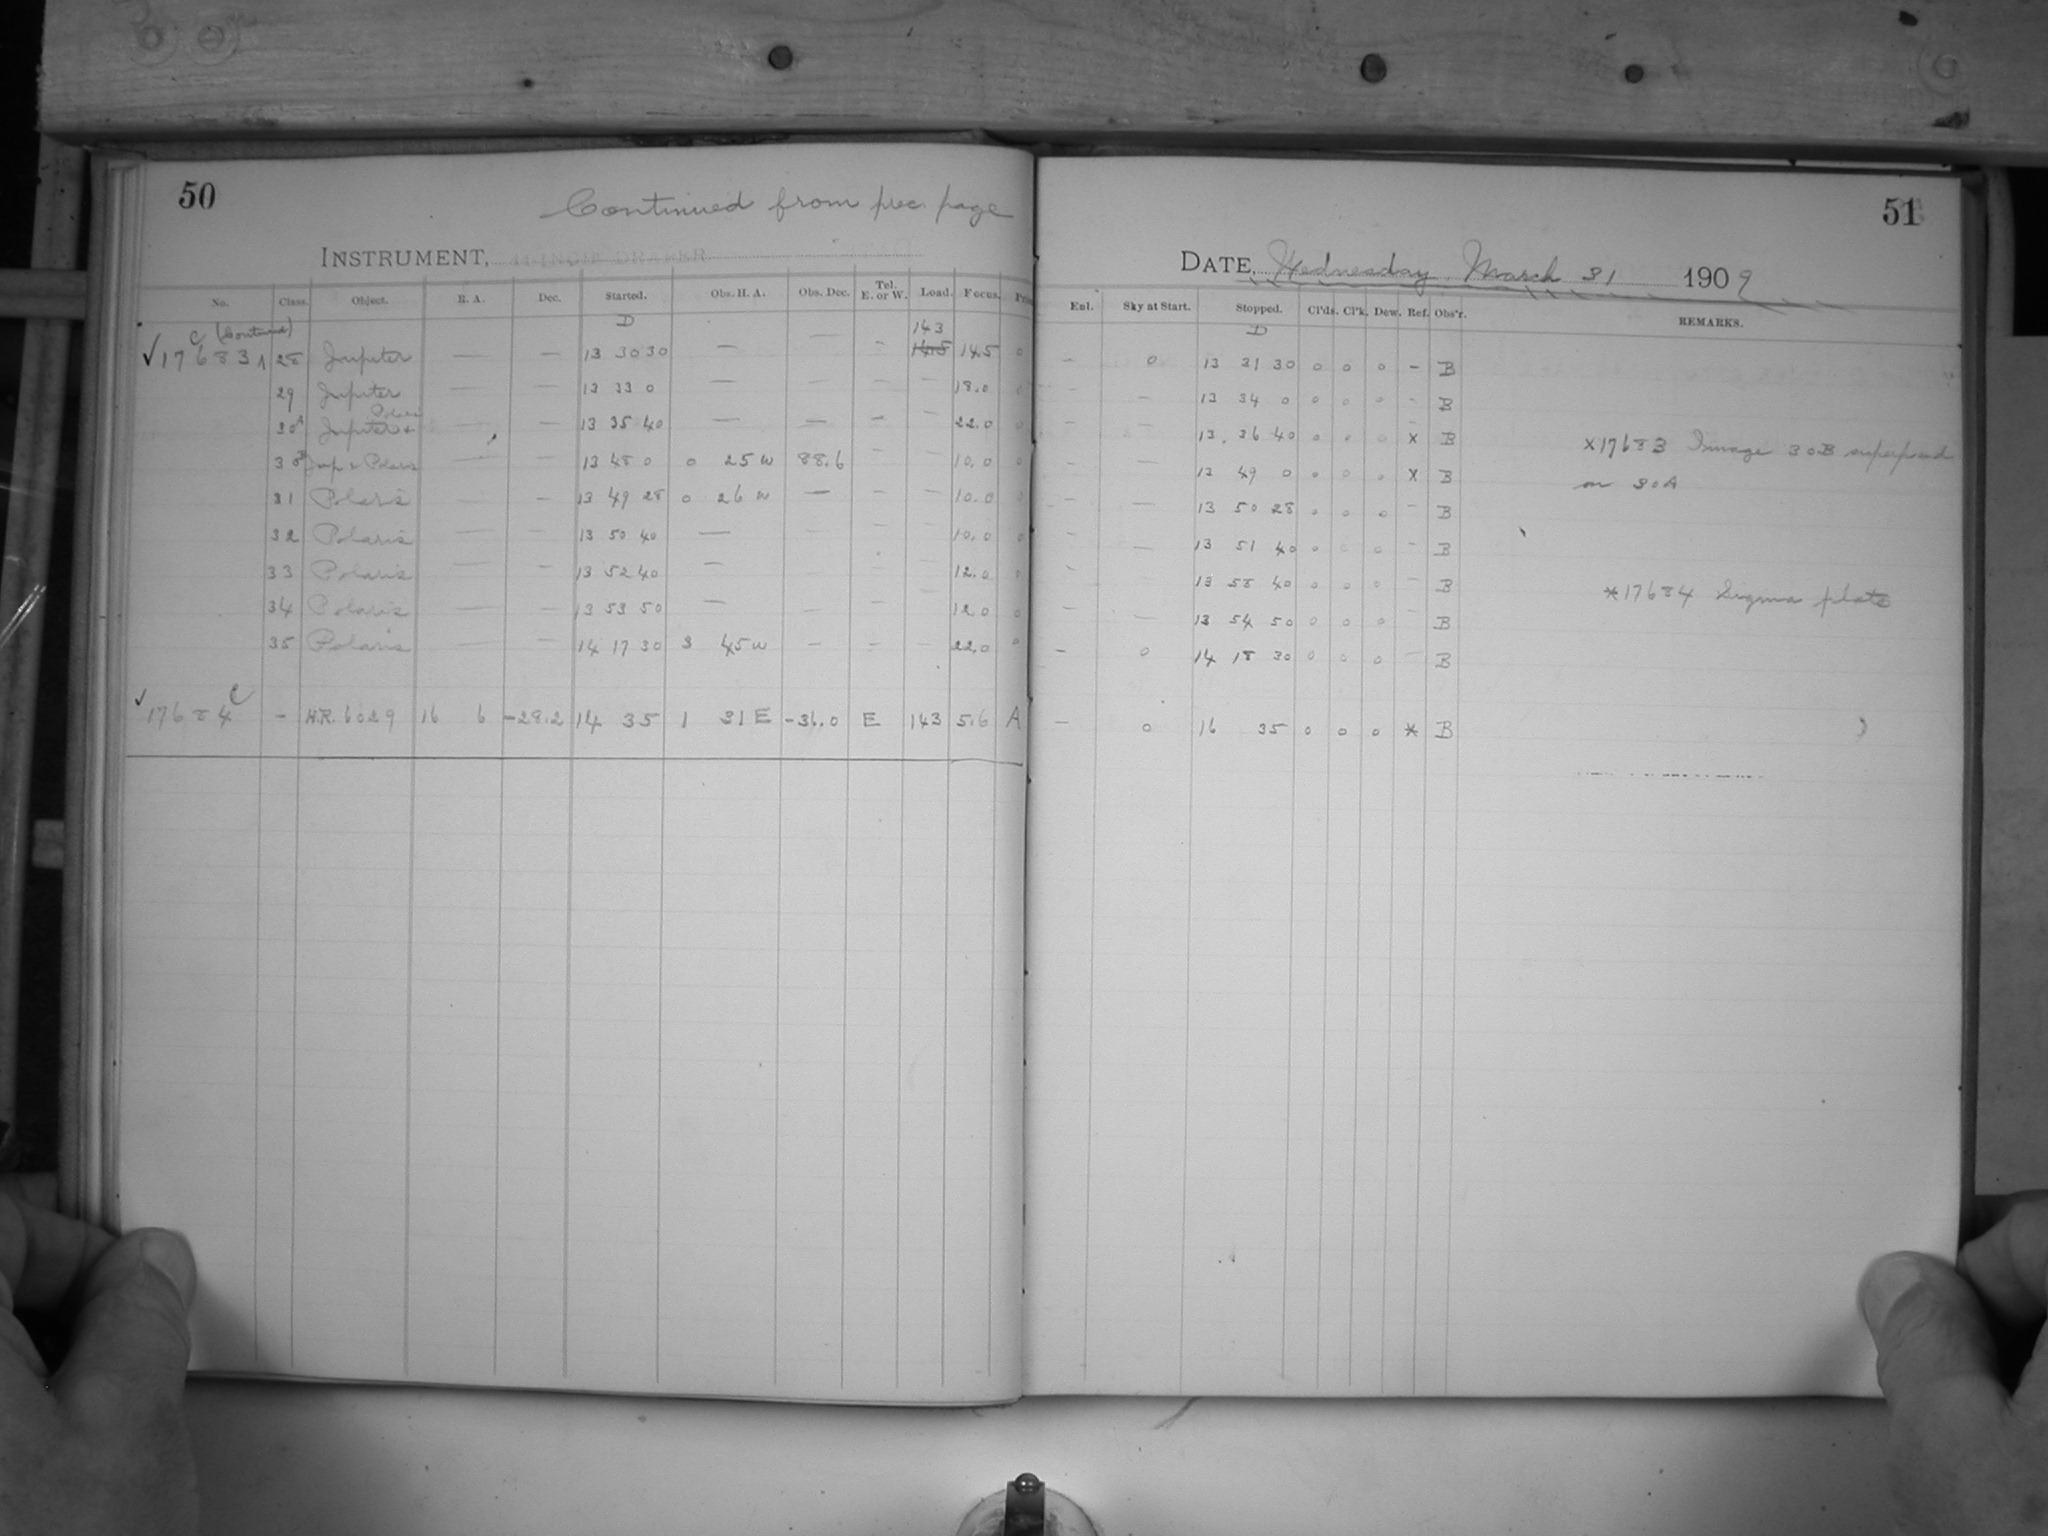 50
Continued from prec. page
INSTRUMENT,
No. Class. Object. R. A. Dec. Started. Obs. H. A. Obs. Dec. Tel. E. or W. Load. Focus.
C (Continued) D 143
✓17683 28 Jupiter — — 13 30 30 — — - 14.5 14.5 0
29 Jupiter — — 13 33 0 — — - — 18.0
30A Jupiter + Polaris — — 13 35 40 — — - — 22.0
30B Jup & Polaris — — 13 48 0 0 25 W 88.6 - — 10.0
31 Polaris — — 13 49 28 0 26 W — - — 10.0
32 Polaris — — 13 50 40 — — - — 10.0
33 Polaris — — 13 52 40 — — - — 12.0
34 Polaris — — 13 53 50 — — - — 12.0
35 Polaris — — 14 17 30 3 45 W - - - 22.0
✓17684 C - H.R. 6029 16 6 -28.2 14 35 1 31 E -36.0 E 143 5.6 A
51
DATE, Wednesday March 31 1909
Enl. Sky at Start. Stopped. Cl'ds. Cl'k. Dew. Ref. Obs'r. REMARKS.
D
- 0 13 31 30 0 0 0 - B
- 13 34 0 0 0 0 - B
- 13 36 40 0 0 0 x B x17683 Image 30B superposed
- 13 49 0 0 0 0 x B on 30A
- 13 50 28 0 0 0 - B
- 13 51 40 0 0 0 - B
13 58 40 0 0 0 - B *17684 Sigma plate
- 13 54 50 0 0 0 - B
- 0 14 18 30 0 0 0 - B
- 0 16 35 0 0 0 * B